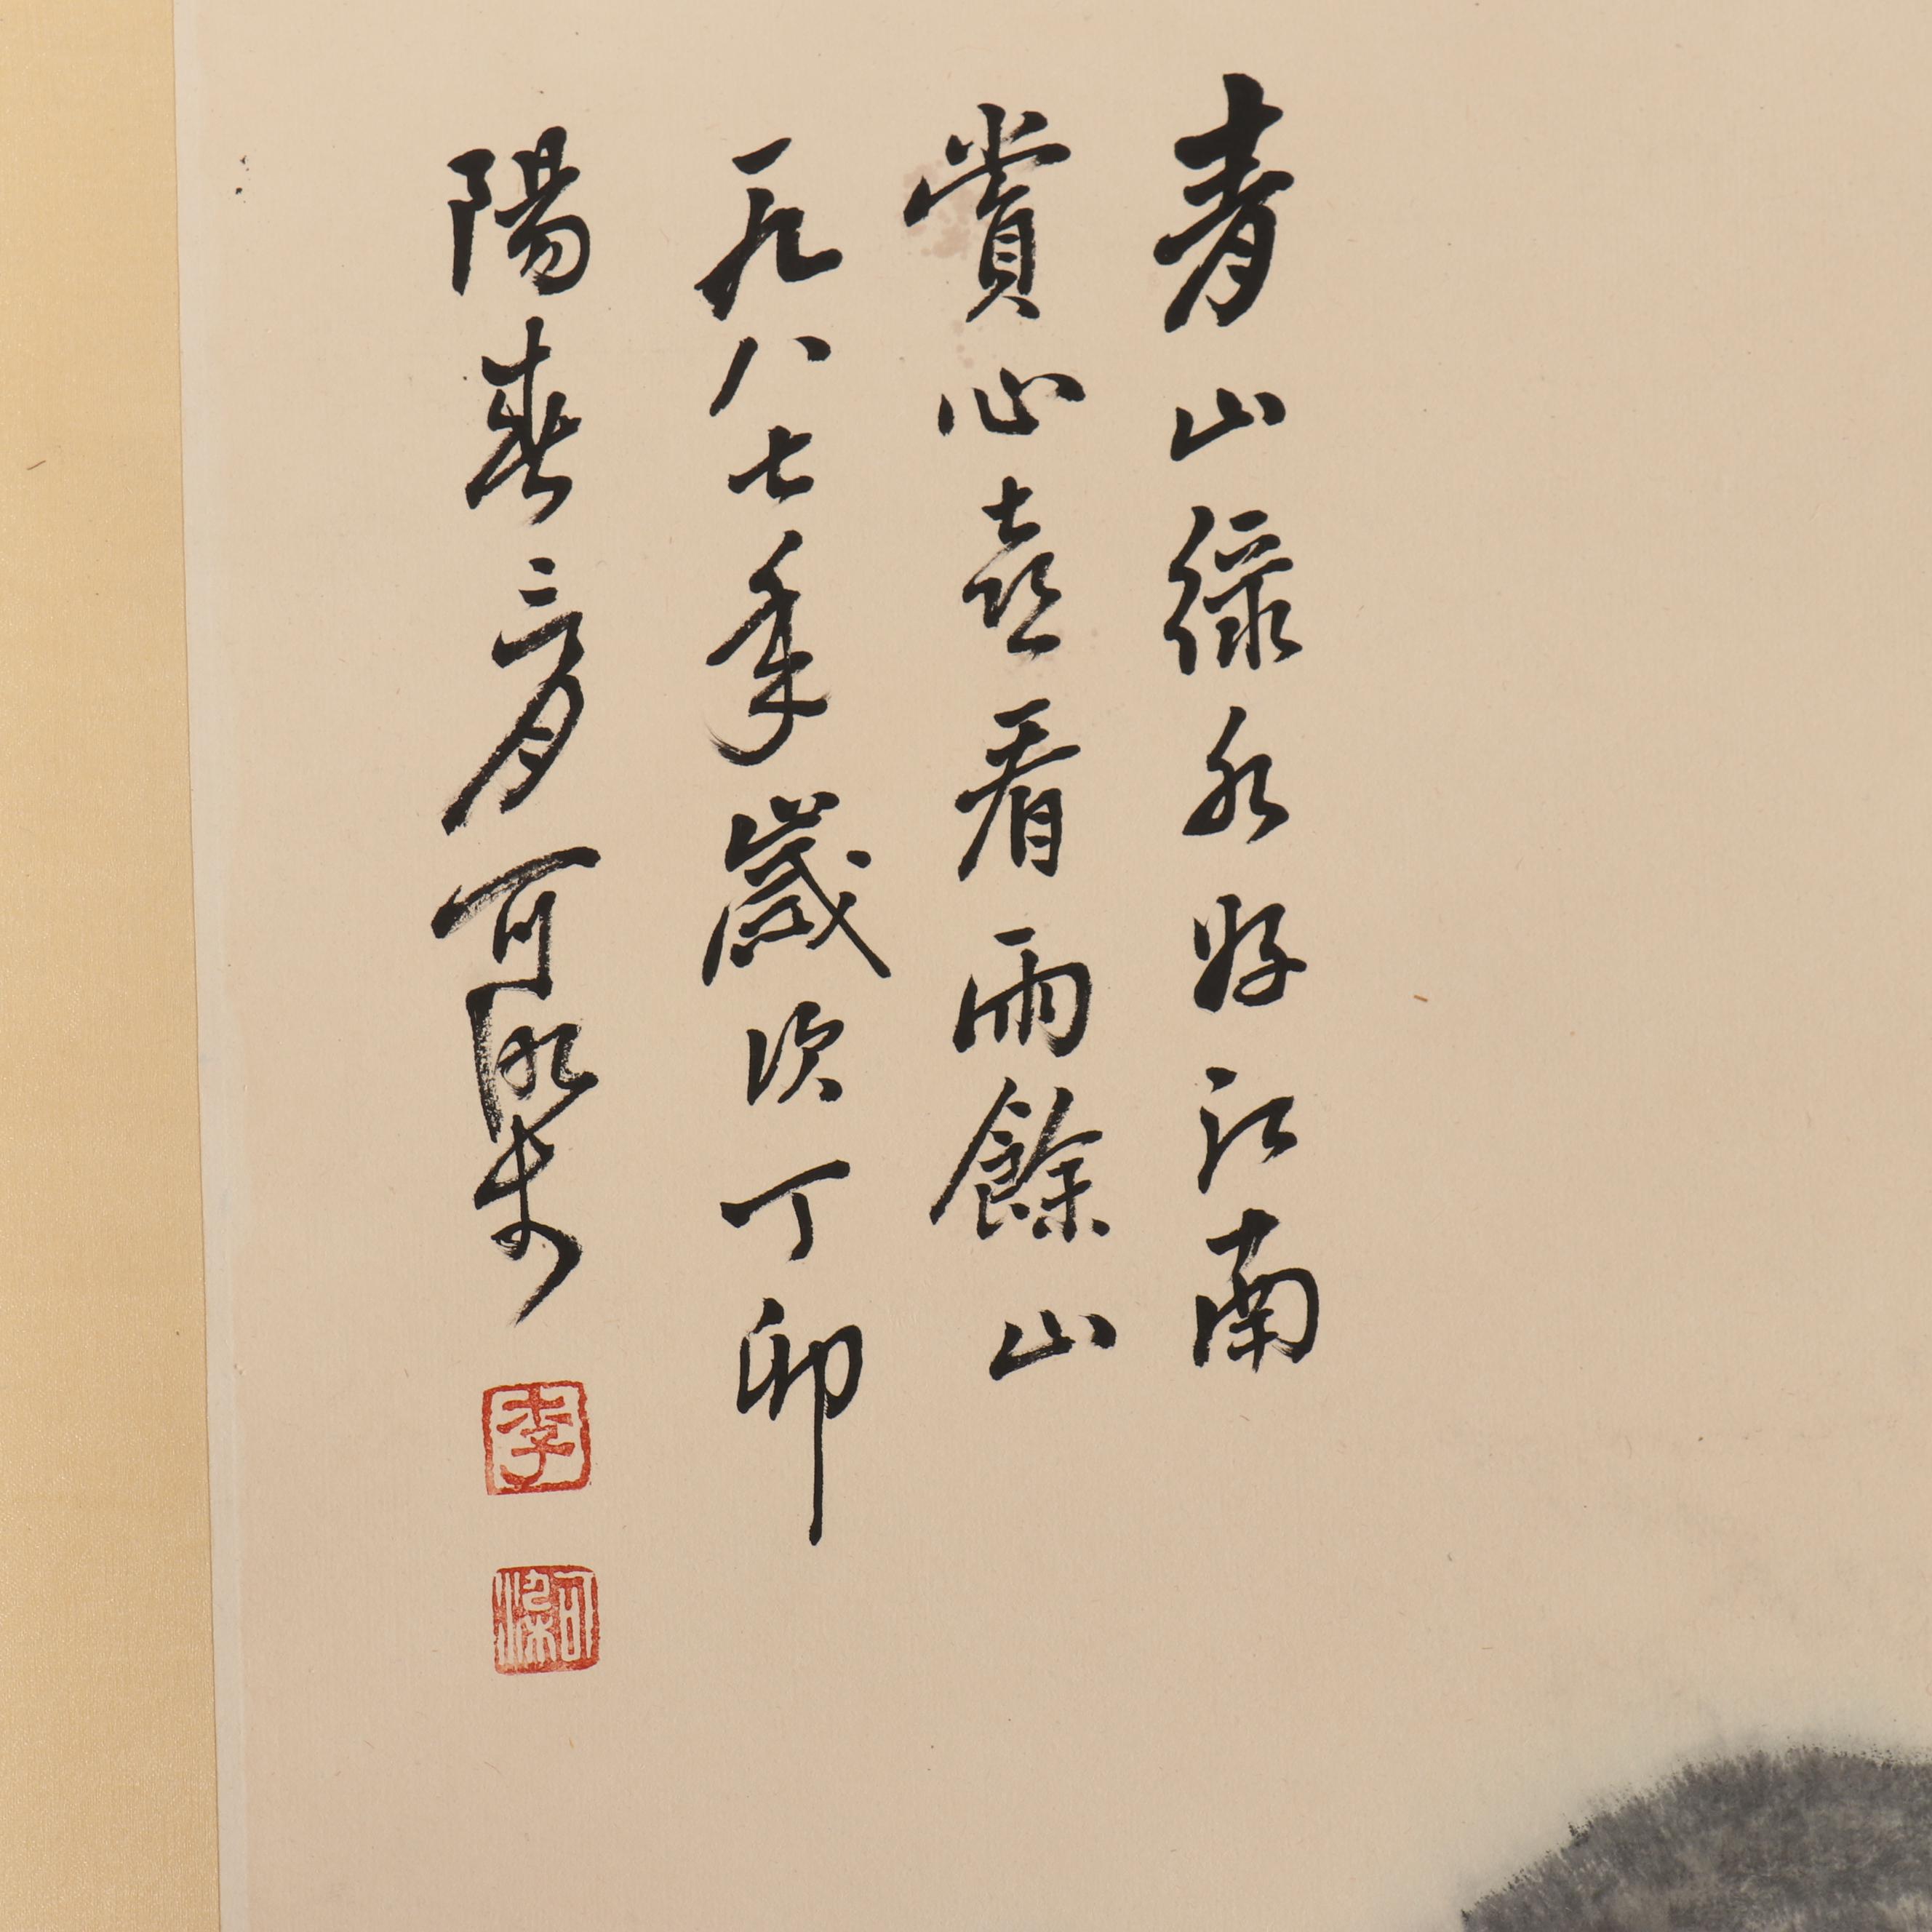 青山綠水好江南
賞心喜看雨餘山
一九八七年歲次丁卯
陽春三月可染
李
可染